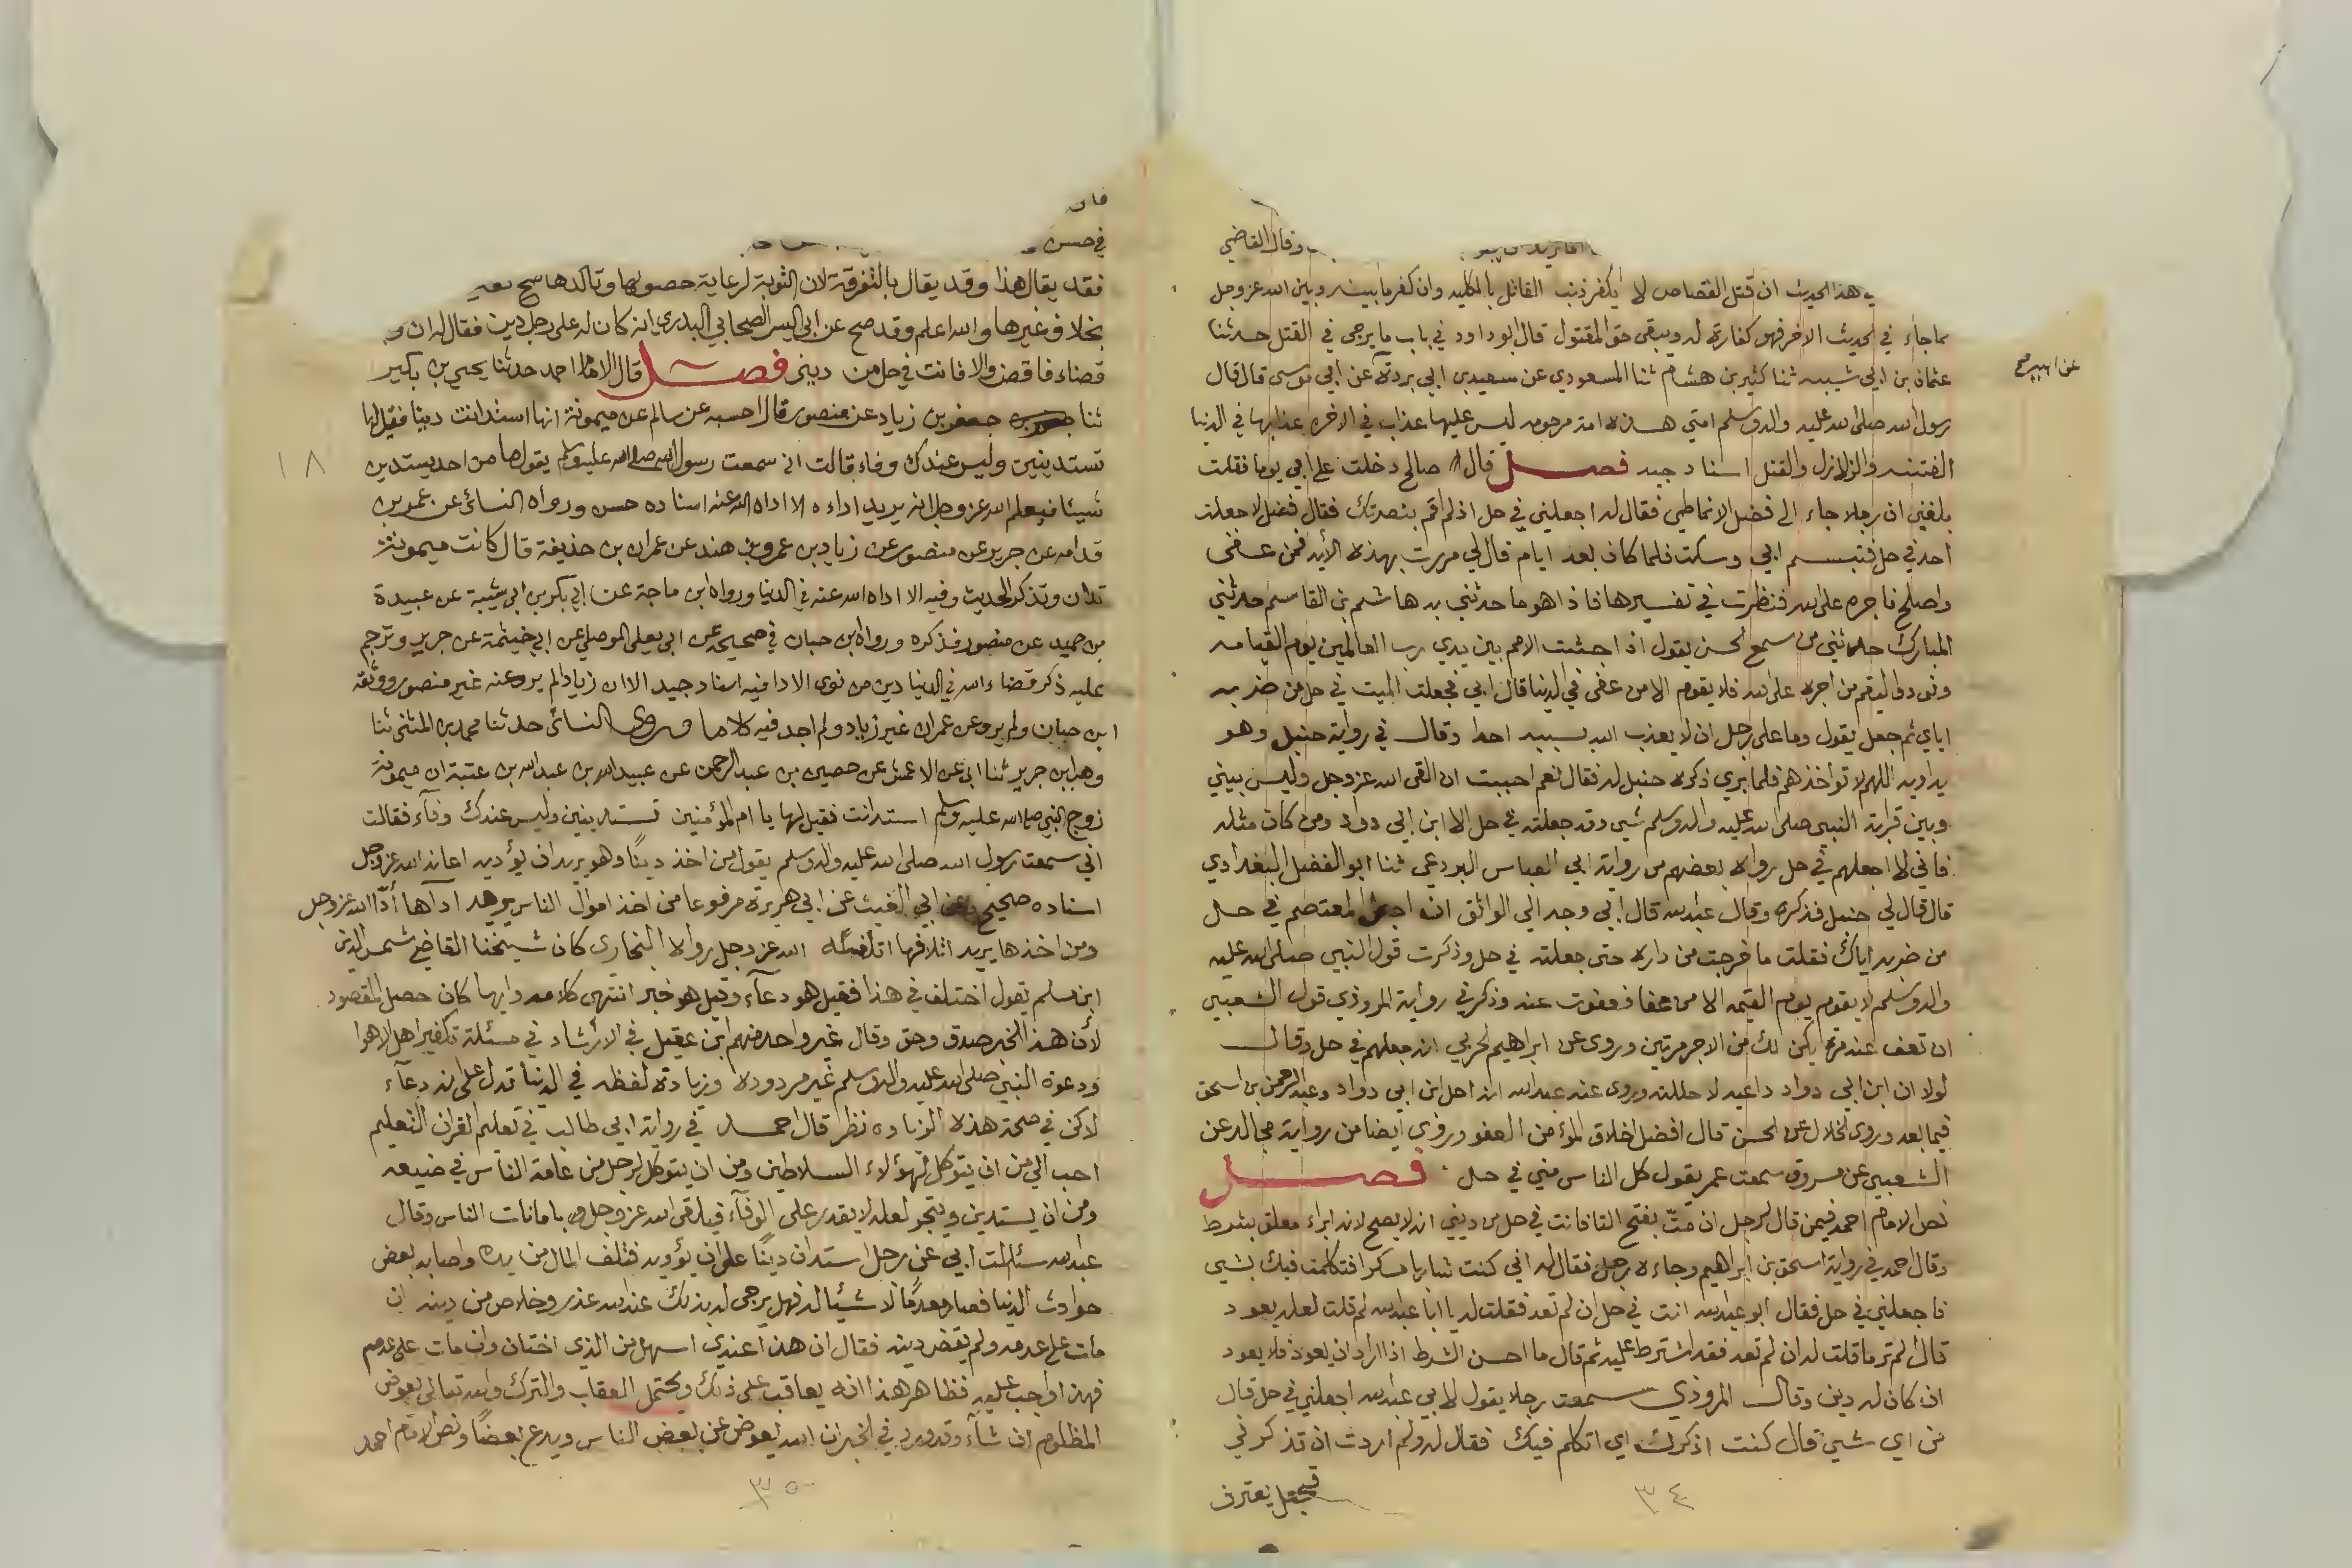 وقال القاضي
هذا الحديث ان قتل القصاص لا يكفر ذنب القاتل بالكليه وان كفر ما بينه وبين الله عز وجل
كما جاء في الحديث الاخر فهو كفارة له ويبقى حق المقتول قال ابو داود في باب ما يرجى في القتل حدثنا
عن ابيه صح
عثمان بن ابي شيبه ثنا كثير بن هشام ثنا المسعودي عن سعيد بن ابي بردة عن ابي موسى قال قال
رسول الله صلى الله عليه واله وسلم امتي هذه امة مرحومه ليس عليها عذاب في الاخره عذابها في الدنيا
الفتنه والزلازل والقتل اسناد جيد فصل قال صالح دخلت على ابي يوما فقلت
بلغني ان رجلا جاء الى فضل الانماطي فقال له اجعلني في حل اذ لم اقم بنصرتك فقال فضل لا جعلت
احد في حل فتبسم ابي وسكت فلما كان بعد ايام قال لي مررت بهذه الأيه فمن عفى
واصلح فاجره على الله فنظرت في تفسيرها فاذا هو ما حدثني به هاشم بن القاسم حدثني
المبارك حدثني من سمع الحسن يقول اذا جثت الامم بين يدي رب العالمين يوم القيامه
ونودوا ليقم من اجره على الله فلا يقوم الا من عفى في الدنيا قال ابي فجعلت الميت في حل من ضربه
اياي ثم جعل يقول وما على رجل ان لا يعذب الله بسببه احدا وقال في رواية حنبل وهو
يداويه اللهم لا تواخذهم فلما بري ذكره حنبل له فقال نعم احببت ان القى الله عز وجل وليس بيني
وبين قرابة النبي صلى الله عليه واله وسلم شي وقد جعلته في حل الا ابن ابي دواد ومن كان مثله
فاني لا اجعلهم في حل رواه بعضهم من رواية ابي العباس البردعي ثنا ابو الفضل البغدادي
قال قال لي حنبل فذكره وقال عبد الله قال ابي وجه الي الواثق ان اجعل المعتصم في حل
من ضربه اياك فقلت ما خرجت من داره حتى جعلته في حل وذكرت قول النبي صلى الله عليه
واله وسلم لا يقوم يوم القيمه الا من عفا فعفوت عنه وذكر في رواية المروذي قول الشعبي
ان تعف عنه مرة يكن لك من الاجر مرتين وروى عن ابراهيم الحربي انه جعلهم في حل وقال
لولا ان ابن ابي دواد داعيه لاحللته وروى عنه عبد الله انه احل ابن ابي دواد وعبد الرحمن بن اسحق
فيما بعد وروى الخلال عن الحسن قال افضل اخلاق المؤمن العفو وروي ايضا من رواية مجالد عن
الشعبي عن مسروق سمعت عمر يقول كل الناس مني في حل فصل
نص الامام احمد فيمن قال لرجل ان متّ بفتح التا فانت في حل من ديني انه لا يصح لانه ابراء معلق بشرط
وقال احمد في رواية اسحق بن ابراهيم وجاءه رجل فقال له اني كنت شاربا مسكرا فتكلمت فيك بشي
فاجعلني في حل فقال ابو عبد الله انت في حل ان لم تعد فقلت له يا ابا عبد الله لم قلت لعله يعود
قال الم تر ما قلت له ان لم تعد فقد اشترط عليه ثم قال ما احسن الشرط اذا اراد ان يعود فلا يعود
ان كان له دين وقال المروذي سمعت رجلا يقول لابي عبد الله اجعلني في حل قال
من اي شي قال كنت اذكرك اي اتكلم فيك فقال له ولم اردت ان تذكرني
فجعل يعترف
٣٤
في حسن
فقد يقال هذا وقد يقال بالتفرقة لان التوبة لرعاية حصولها وتاكدها صح
بخلاف غيرها والله اعلم وقد صح عن ابي اليسر الصحابي البدري انه كان له على رجل دين فقال له ان
قضاء فاقض والا فانت في حل من ديني فصل قال الامام احمد حدثنا يحيى بن بكير
ثنا جعفر بن زياد عن منصور قال احسبه عن سالم عن ميمونة انها استدانت دينا فقيل لها
تستدينين وليس عندك وفاء قالت اني سمعت رسول الله صلى الله عليه وسلم يقول ما من احد يستدين
١٨
شيئا فيعلم الله عز وجل انه يريد اداءه الا اداه الله عنه اسناده حسن ورواه النسائي عن محمد بن
قدامه عن جرير عن منصور عن زياد بن عمرو بن هند عن عمران بن حذيفة قال كانت ميمونة
تدان وتذكر الحديث وفيه الا اداه الله عنه في الدنيا ورواه ابن ماجة عن ابي بكر بن ابي شيبة عن عبيدة
بن حميد عن منصور فذكره ورواه ابن حبان في صحيحه عن ابي يعلى الموصلي عن ابي خيثمة عن جرير وترجم
عليه ذكر قضاء الله في الدنيا دين من نوى الادا فيه اسناد جيد الا ان زيادا لم يرو عنه غير منصور ووثقه
ابن حبان ولم يرو عن عمران غير زياد ولم اجد فيه كلاما وروى النسائي حدثنا محمد بن المثنى ثنا
وهب ابن جرير ثنا ابي عن الاعمش عن حصين بن عبد الرحمن عن عبيد الله بن عبد الله بن عتبة ان ميمونة
زوج النبي صلى الله عليه وسلم استدانت فقيل لها يا ام المؤمنين تستدينين وليس عندك وفآء فقالت
اني سمعت رسول الله صلى الله عليه واله وسلم يقول من اخذ دينًا وهو يريد ان يؤديه اعانه الله عز وجل
اسناده صحيح وعن ابي الغيث عن ابي هريرة مرفوعا من اخذ اموال الناس يريد اداها أدّا الله عز وجل
ومن اخذها يريد اتلافها اتلفه الله عز وجل رواه البخارى كان شيخنا القاضي شمس الدين
ابن مسلم يقول اختلف في هذا فقيل هو دعآء وقيل هو خبر انتهى كلامه وايها كان حصل المقصود
لأن هذا الخبر صدق وحق وقال غير واحد منهم ابن عقيل في الارشاد في مسئلة تكفير اهل الاهوا
ودعوة النبي صلى الله عليه واله وسلم غير مردوده وزيادة لفظه في الدنيا تدل على انه دعآء
لاكن في صحة هذه الزياده نظر قال احمد في رواية ابي طالب في تعليم القران التعليم
احب الي من ان يتوكل لهؤلاء السلاطين ومن ان يتوكل لرجل من عامة الناس في ضيعه
ومن ان يستدين ويتجر لعله لا يقدر على الوفآء فيلقى الله عز وجل بامانات الناس وقال
عبد الله سئالت ابي عن رجل استدان دينًا على ان يؤديه فتلف المال من يده واصابه بعض
حوادث الدنيا فصار معدمًا لا شيئا له فهل يرجى له بذلك عند الله عذر وخلاص من دينه ان
مات على عدمه ولم يقض دينه فقال ان هذا عندي اسهل من الذي اختان وان مات على عدمه
فهذا واجب عليه فظاهر هذا انه يعاقب على ذلك ويحتمل العقاب والترك والله تعالى يعوض
المظلوم ان شآء وقد ورد في الخبر ان الله يعوض عن بعض الناس ويدع بعضًا ونص الامام احمد
٣٥